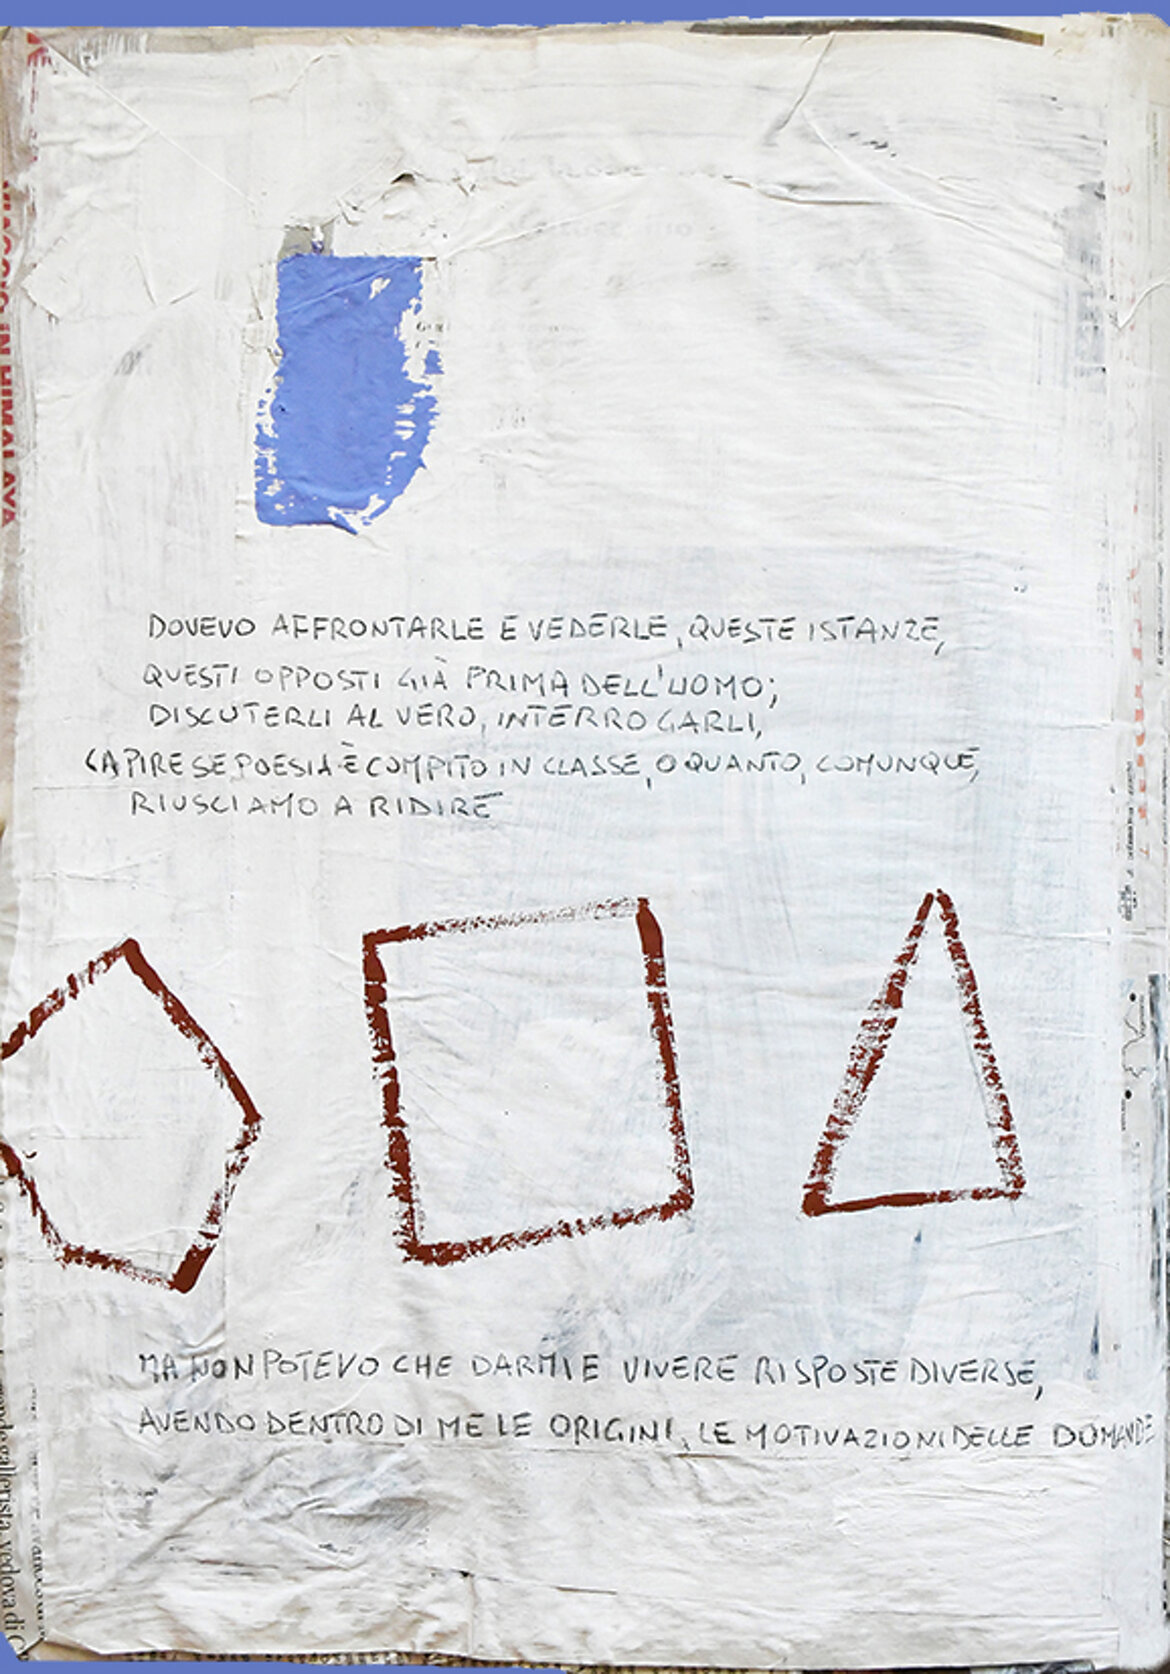 DOVEVO AFFRONTARLE E VEDERLE, QUESTE ISTANZE,
QUESTI OPPOSTI GIÀ PRIMA DELL'UOMO;
DISCUTERLI AL VERO, INTERROGARLI,
CAPIRE SE POESIA È COMPITO IN CLASSE, O QUANTO, COMUNQUE,
RIUSCIAMO A RIDIRE
MA NON POTEVO CHE DARMI E VIVERE RISPOSTE DIVERSE,
AVENDO DENTRO DI ME LE ORIGINI, LE MOTIVAZIONI DELLE DOMANDE
VIAGGIO IN HIMALAYA
gallerista, vedova di